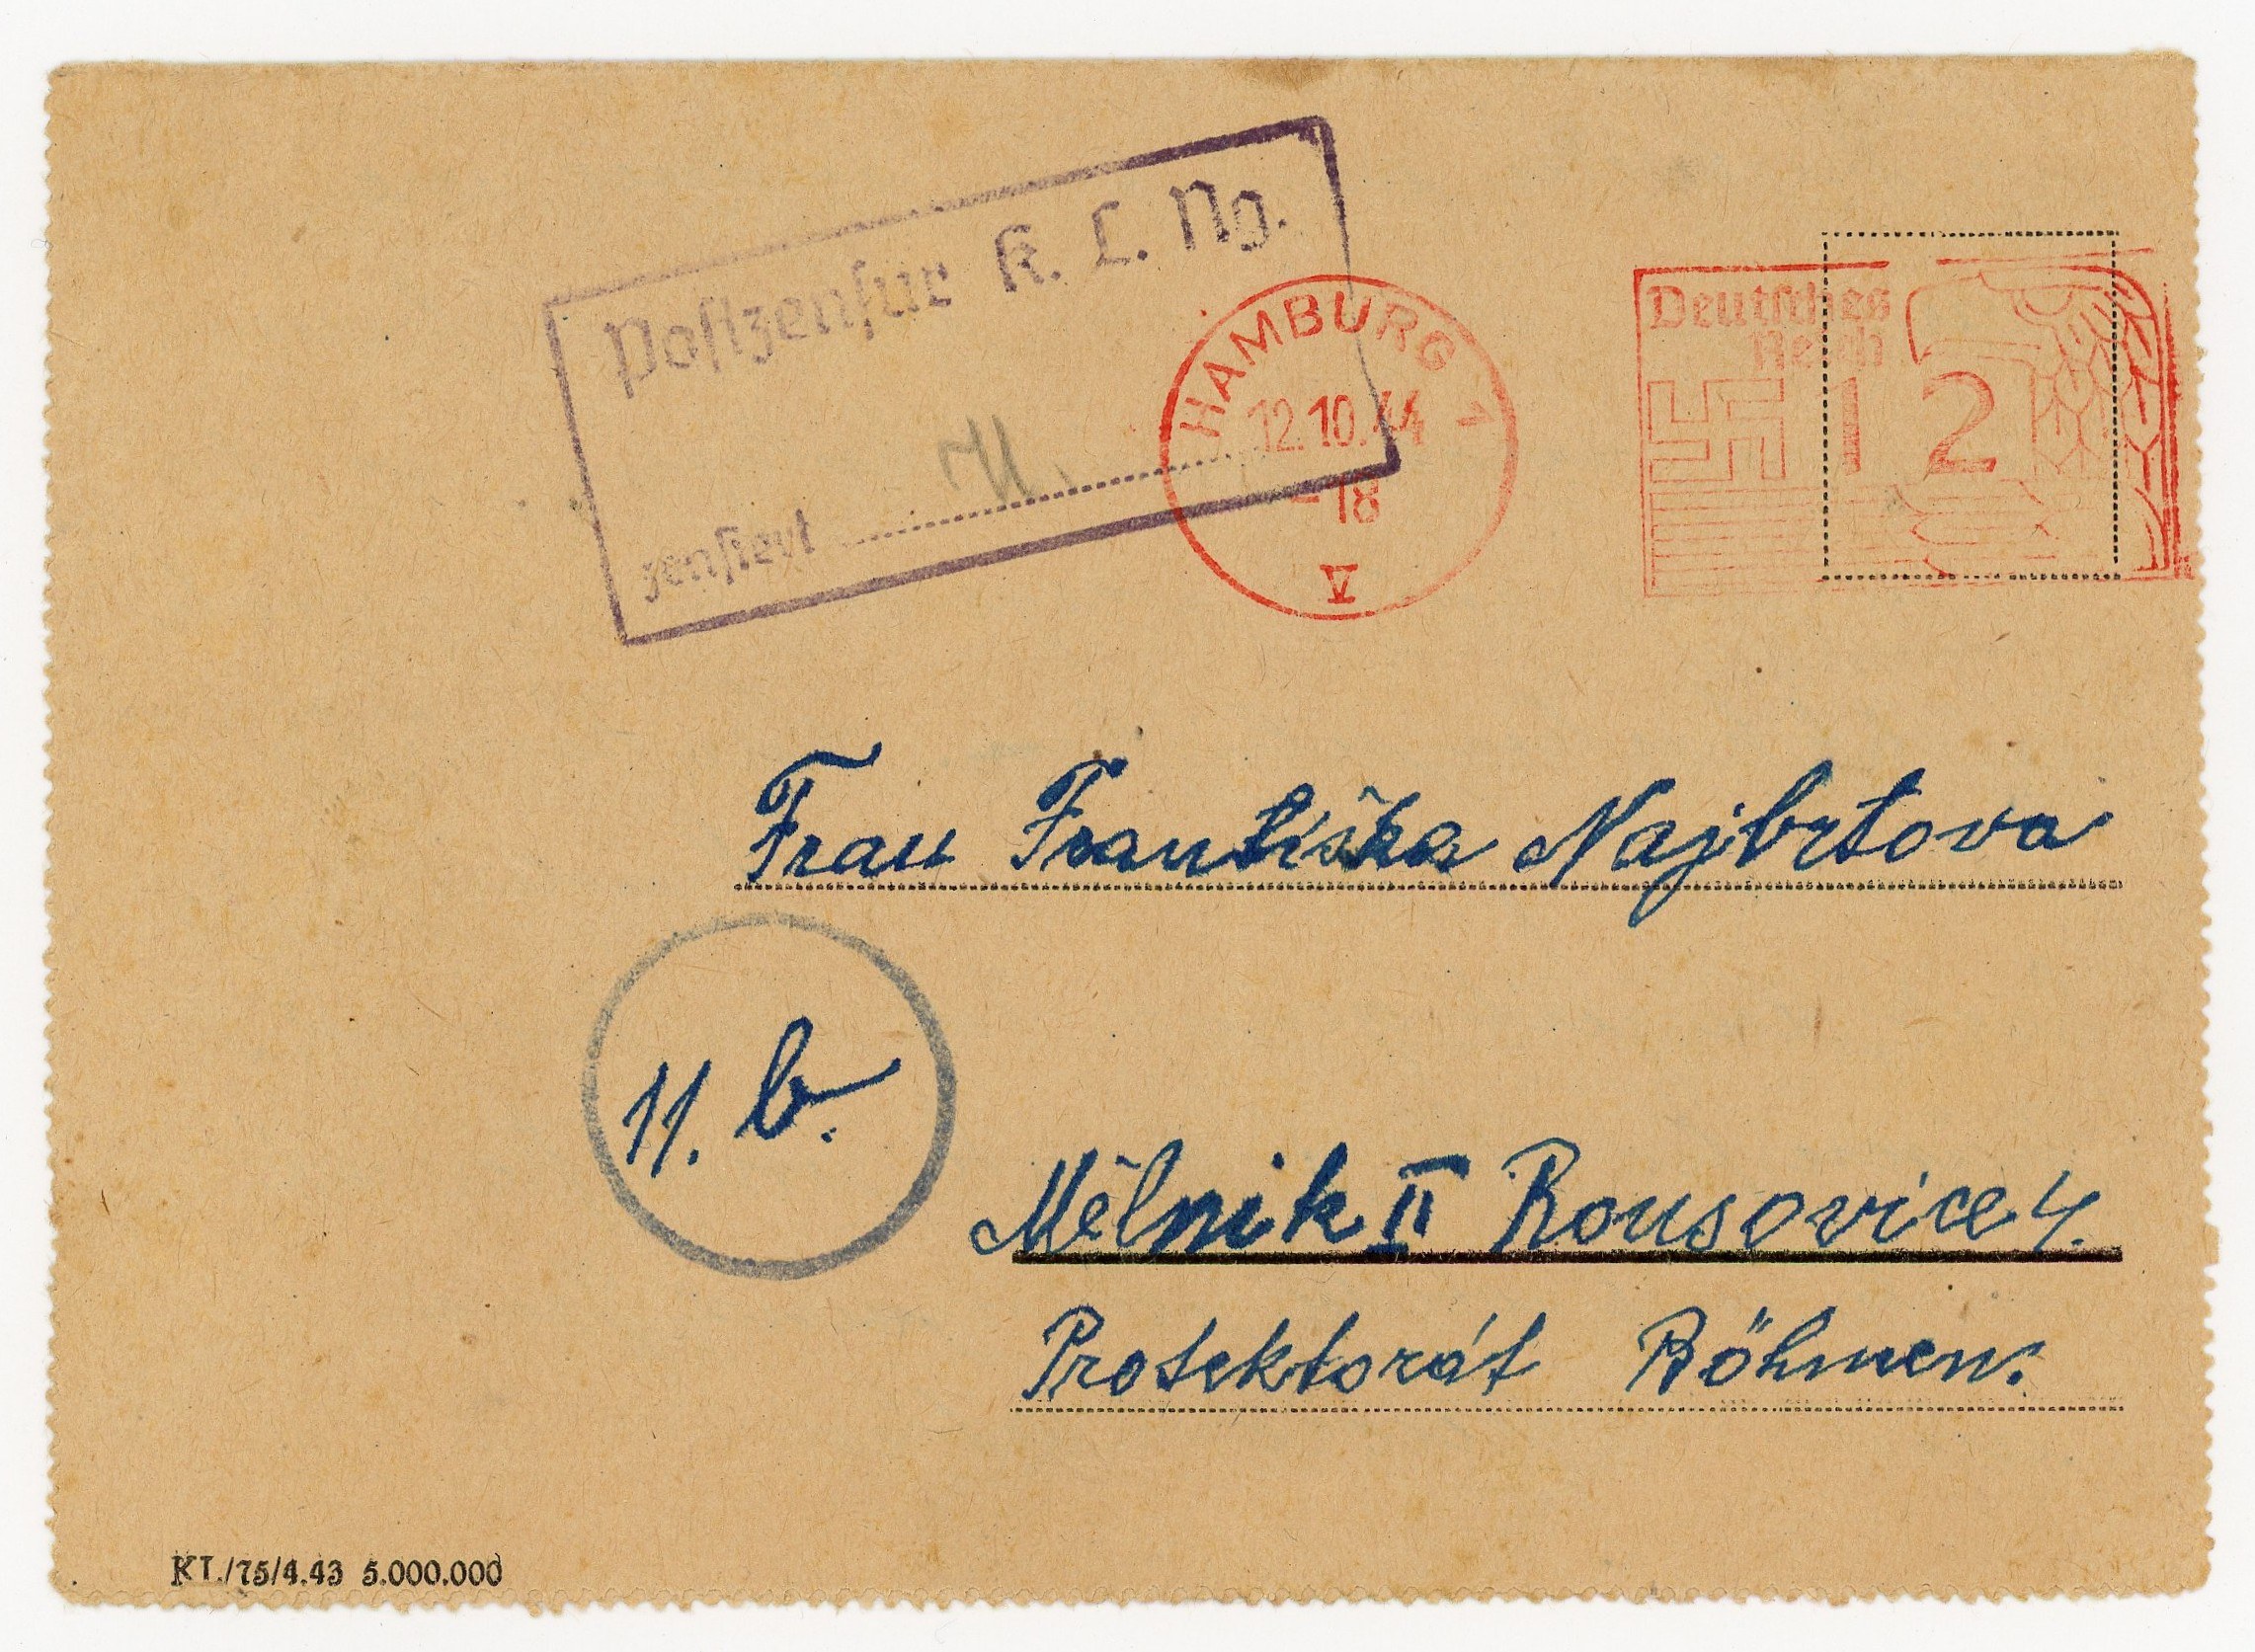 Postzensur K. L. Ng.
zensiert
HAMBURG 1
12.10.44
-18
V
Deutsches
Reich
12
Frau Františka Najbrtova
11. b.
Mělnik II Rousovice 4.
Protektorát Böhmen.
KL/75/4.43 5.000.000